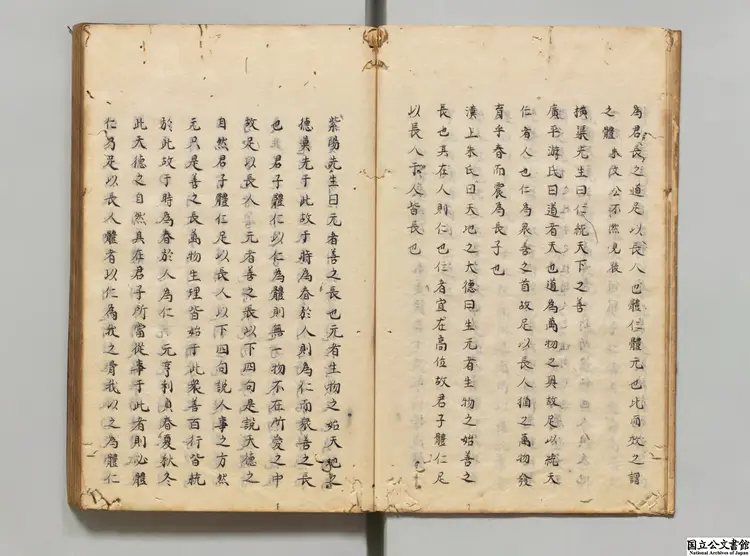 為君長之道足以長人也體仁體元也比而效之謂
之體 朱文公不然見後
橫渠先生曰仁統天下之善
廣平游氏曰道者天也道為萬物之奧故足以統天
仁者人也仁為眾善之首故足以長人猶之萬物發
育乎春而震為長子也
漢上朱氏曰天地之大德曰生元者生物之始善之
長也其在人則仁也仁者宜在高位故君子體仁足
以長人于人皆長也
紫陽先生曰元者善之長也元者生物之始天地之
德莫先于此故于時為春於人則為仁而眾善之長
也 君子體仁以仁為體則無一物不在所愛之中
故足以長人 元者善之長以下四句是說天德之
自然君子體仁足以長人以下四句說人事之方然
元只是善之長萬物生理皆始于此眾善百行皆統
於此故于時為春於人為仁 元亨利貞春夏秋冬
此天德之自然其在君子所當從事于此者則必體
仁乃足以長人體者以仁為我之骨我以之為體仁
国立公文書館
National Archives of Japan